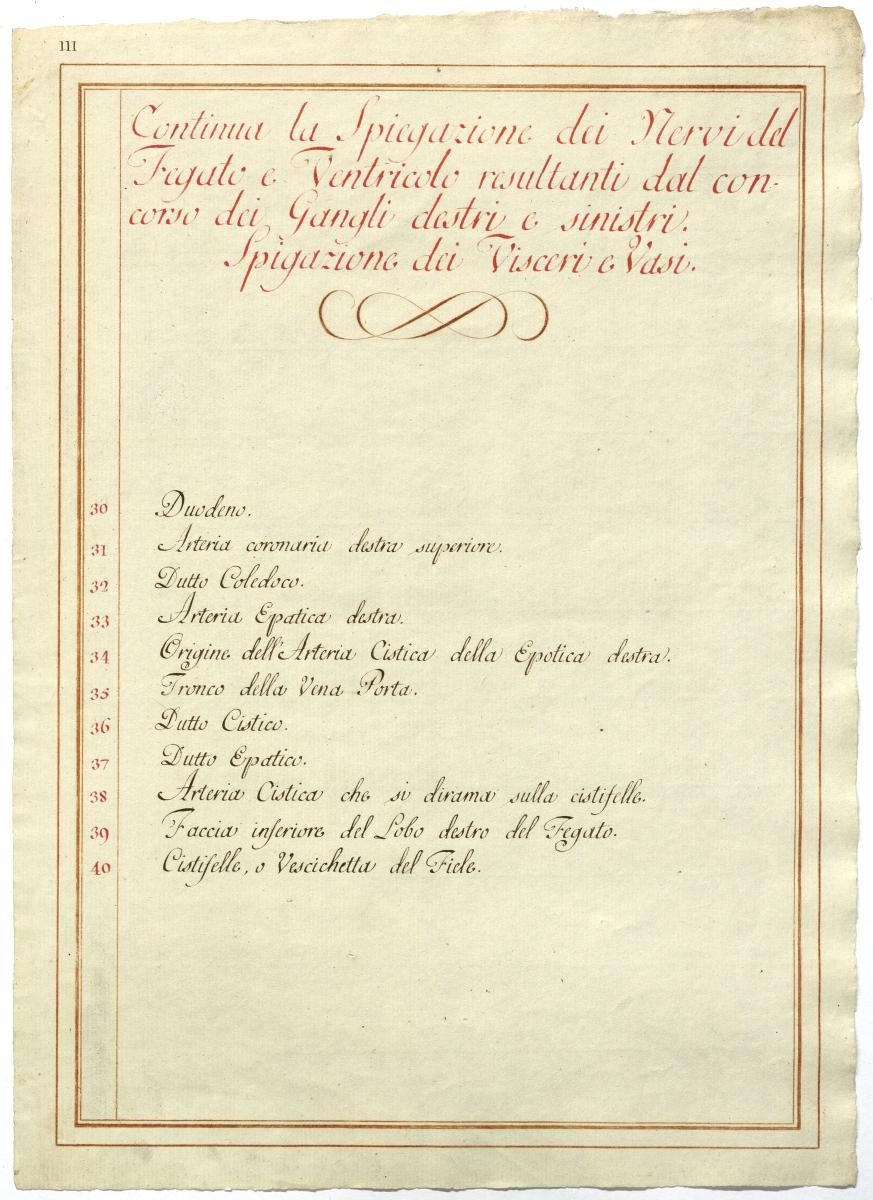 III
Continua la Spiegazione dei Nervi del
Fegato e Ventricolo resultanti dal con-
corso dei Gangli destri e sinistri.
Spigazione dei Visceri e Vasi.
30 Duodeno.
31 Arteria coronaria destra superiore.
32 Dutto Coledoco.
33 Arteria Epatica destra.
34 Origine dell'Arteria Cistica della Epotica destra.
35 Tronco della Vena Porta.
36 Dutto Cistico.
37 Dutto Epatico.
38 Arteria Cistica che si dirama sulla cistifelle.
39 Faccia inferiore del Lobo destro del Fegato.
40 Cistifelle, o Vescichetta del Fiele.